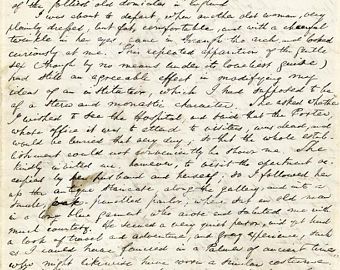 of the jolliest old domiciles in England.
I was about to depart, when another old woman, very
plainly dressed, but fat, comfortable, and with a cheerful
twinkle in her eyes, came through the arch and looked
curiously at me. This repeated apparition of the gentle
sex (though by no means under its loveliest guise)
had still an agreeable effect in modifying my
ideas of an institution, which I had supposed to be
of a stern and monastic character. She asked whether
I wished to see the Hospital, and said that the Porter,
whose office it was to attend to visitors, was dead, and
would be buried that very day; so that the whole estab-
lishment could not conveniently be shown me. She
kindly invited me, however, to visit the apartment oc-
cupied by her husband and herself; so I followed her
up the antique staircase along the gallery, and into a
small, oak panelled parlor, where sat an old man
in a long blue garment, who arose and saluted me with
much courtesy. He seemed a very quiet person, and yet had
a look of travel and adventure, and gray experience, such
as I could have fancied in a Palmer of ancient times
who might likewise have worn a similar costume.